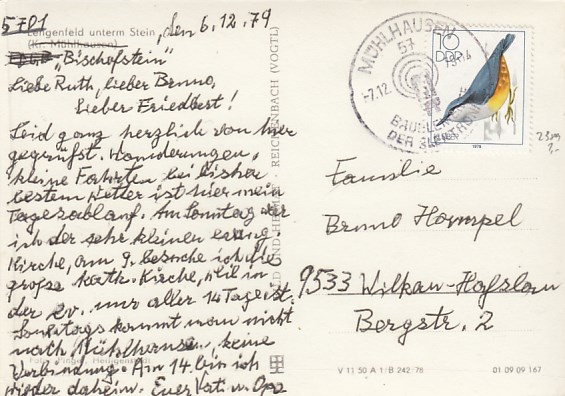 5701
Lengenfeld unterm Stein, den 6.12.79
(Kr. Mühlhausen)
"Bischofstein"
Liebe Ruth, lieber Benno,
lieber Friedbert!
Seid ganz herzlich von hier
gegrüßt. Wanderungen,
kleine Fahrten bei bisher
bestem Wetter ist hier mein
Tagesablauf. Am Sonntag war
ich der sehr kleinen evang.
Kirche, am 9. besuche ich die
große kath. Kirche, weil in
der ev. nur aller 14 Tage ist.
Sonntags kommt man nicht
nach Mühlhausen, keine
Verbindung. Am 14. bin ich
wieder daheim. Euer Vati u. Opa
Foto: Pinge, Heiligenstadt
BILD UND HEIMAT REICHENBACH (VOGTL)
MÜHLHAUSEN
57
-7.12.
DER
10
DDR
1979
Familie
Benno Hampel
9533 Wilkau-Haßlau
Bergstr. 2
V 11 50 A 1/B 242/78
01 09 09 167